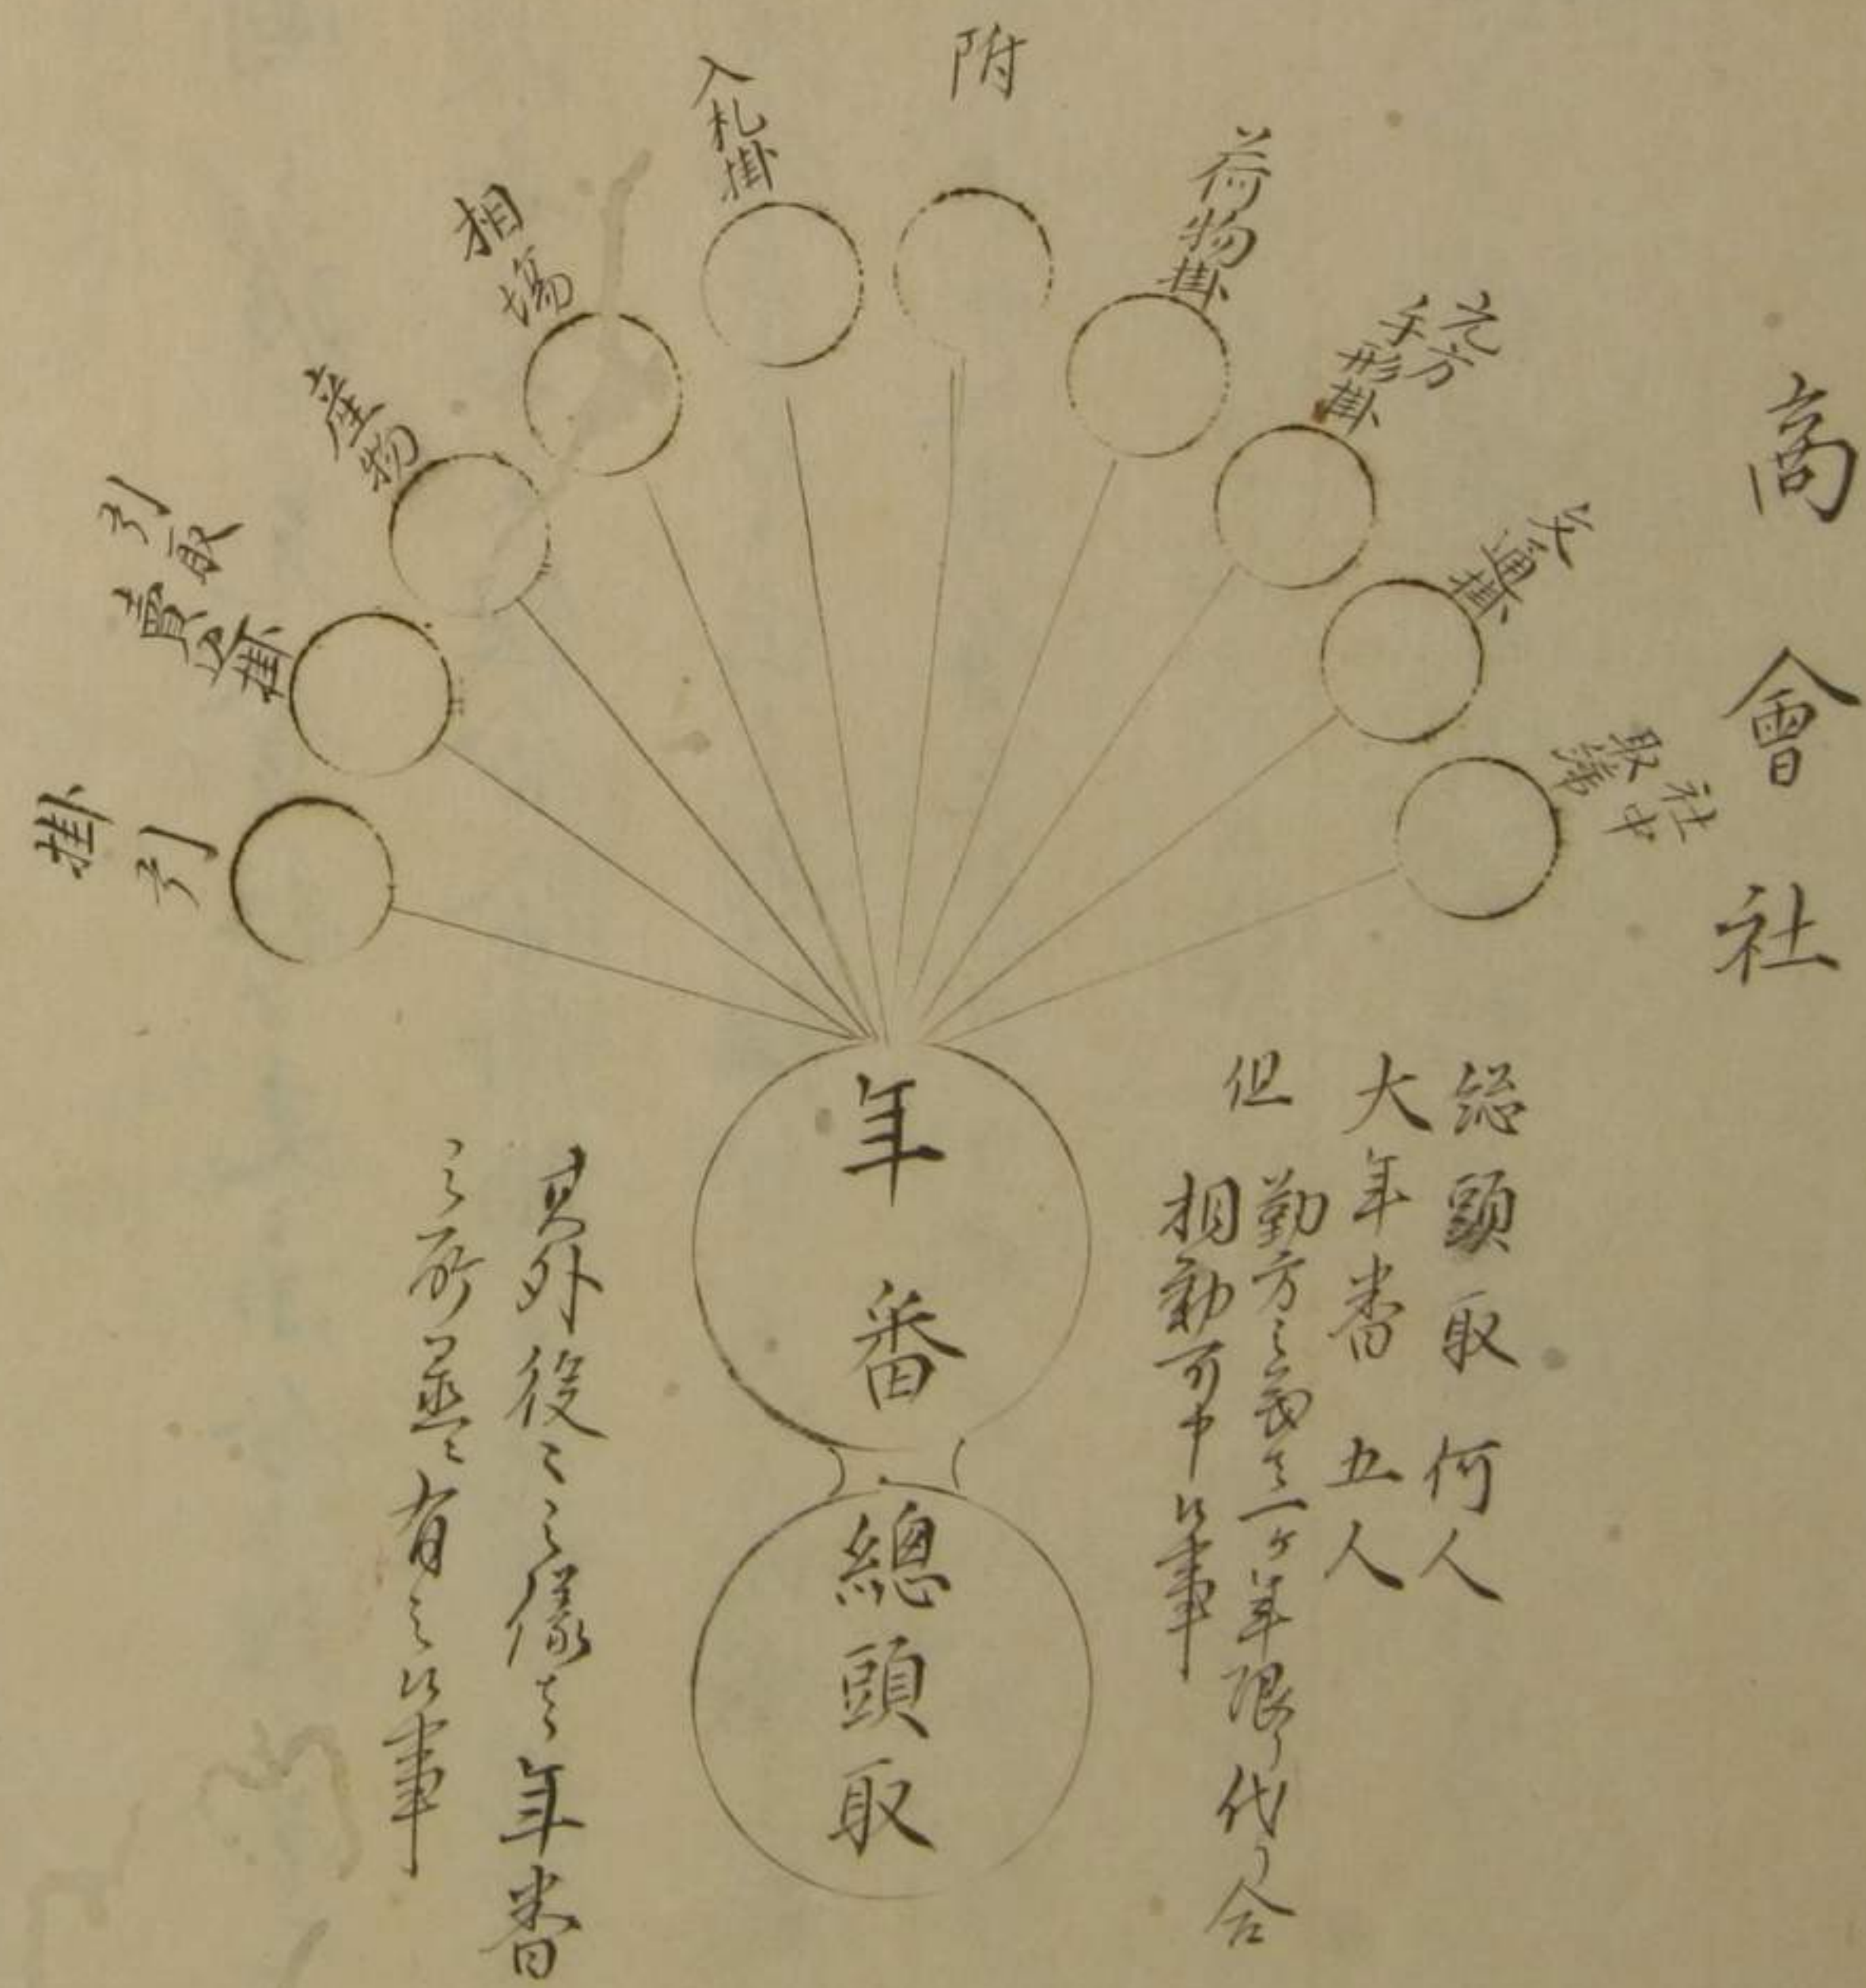 商會社
社中
取締
文通掛
元方
手形掛
荷物掛
附
入札掛
相場
産物
引取
賣込掛
掛引
年番
總頭取
総頭取 何人
大年番 五人
但 勤方之義者一ケ年限り代り合
相勤可申候事
其外役々之儀者年番
之所蓋〻有之候事